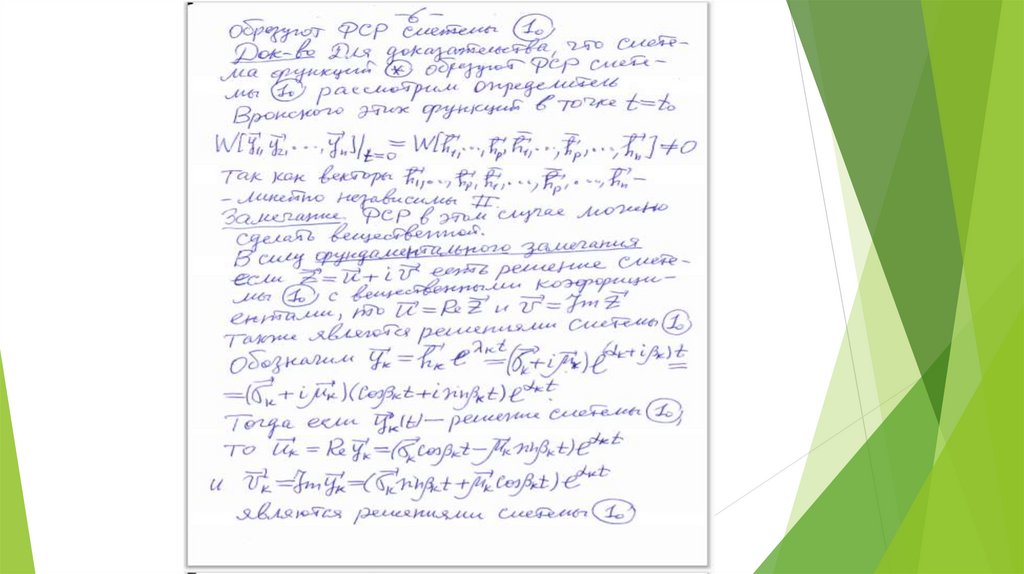 –6–
образуют ФСР системы (1₀)
Док-во Для доказательства, что систе-
ма функций (*) образуют ФСР систе-
мы (1₀) рассмотрим определитель
Вронского этих функций в точке t=t₀
W[y⃗₁, y⃗₂, ..., y⃗ₙ]|ₜ₌₀ = W[h⃗₁, ..., h⃗ₚ, h̄⃗₁, ..., h̄⃗ₚ, ..., h⃗ₙ] ≠ 0
так как векторы h⃗₁, ..., h⃗ₚ, h̄⃗₁, ..., h̄⃗ₚ, ..., h⃗ₙ –
– линейно независимы
Замечание. ФСР в этом случае можно
сделать вещественной.
В силу фундаментального замечания
если z⃗ = u⃗ + i v⃗ есть решение систе-
мы (1₀) с вещественными коэффици-
ентами, то u⃗ = Re z⃗ и v⃗ = Jm z⃗
также являются решениями системы (1₀)
Обозначим y⃗ₖ = h⃗ₖ e^{λₖt} = (σ⃗ₖ + i μ⃗ₖ) e^{(αₖ + iβₖ)t} =
= (σ⃗ₖ + i μ⃗ₖ)(cosβₖt + i sinβₖt) e^{αₖt}.
Тогда если y⃗ₖ(t) – решение системы (1₀),
то u⃗ₖ = Re y⃗ₖ = (σ⃗ₖ cosβₖt – μ⃗ₖ sinβₖt) e^{αₖt}
и v⃗ₖ = Jm y⃗ₖ = (σ⃗ₖ sinβₖt + μ⃗ₖ cosβₖt) e^{αₖt}
являются решениями системы (1₀)